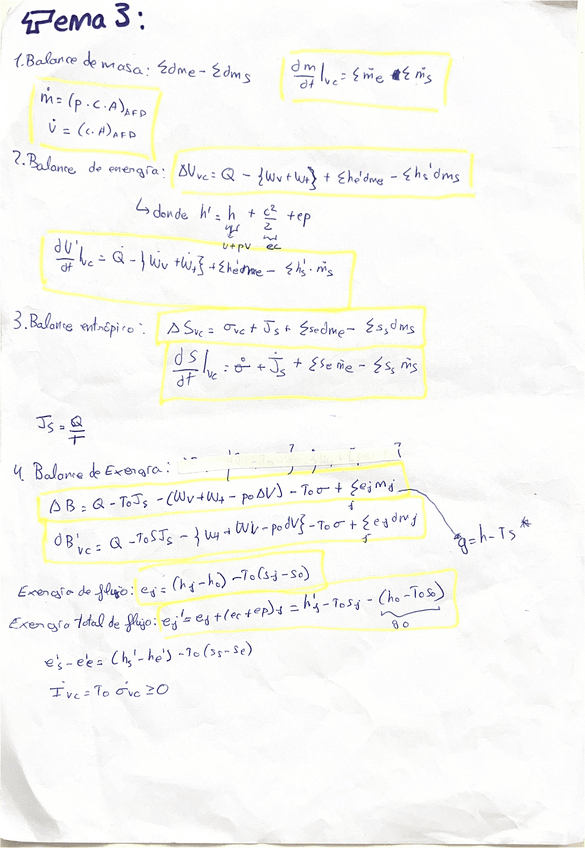 Tema 3:
1. Balance de masa: Σdme - Σdms
dm/dt|vc = Σ ṁe - Σ ṁs
ṁ = (ρ·C·A)AFD
v̇ = (C·A)AFD
2. Balance de energía: ΔUvc = Q - {Wv + Wt} + Σhe'dme - Σhs'dms
↳ donde h' = h + c²/2 + ep
u+pv ec
dU'/dt|vc = Q̇ - {Ẇv + Ẇt} + Σhe'dme - Σhs'·ṁs
3. Balance entrópico: ΔSvc = σvc + Js + Σsedme - Σssdms
dS/dt|vc = σ̇ + J̇s + Σse ṁe - Σss ṁs
Js = Q/T
4. Balance de Exergía:
ΔB = Q - T0Js - (Wv + Wt - p0ΔV) - T0σ + Σej mj
j
dB'vc = Q - T0δJs - {Wt + Wv - p0dV} - T0σ + Σej dmj
j
g = h - Ts *
Exergía de flujo: ej = (hj - h0) - T0(sj - s0)
Exergía total de flujo: ej' = ej + (ec + ep)j = h'j - T0sj - (h0 - T0s0)
g0
e's - e'e = (hs' - he') - T0(ss - se)
İvc = T0 σ̇vc ≥ 0